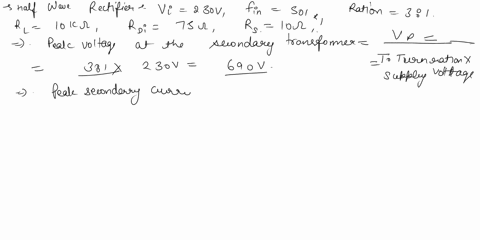 Half Wave Rectifier: Vi = 230V, fin = 50Hz, Ration = 3:1.
RL = 10KΩ, RDi = 75Ω, RS = 10Ω,
⇒). Peak voltage at the secondary transformer = VP =
= 3:1 x 230V = 690V. = To Turnration x supply voltage
⇒). Peak secondary curr